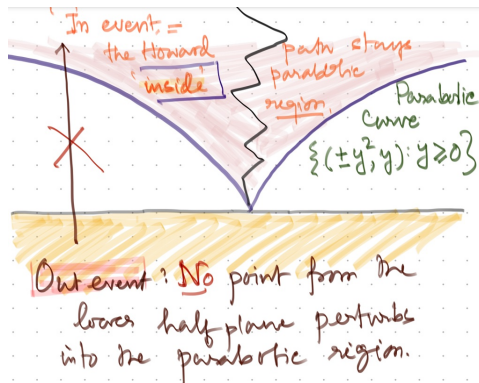 'In event' =
the Howard
'inside'
path stays
parabolic
region.
Parabolic
Curve
{(±y², y): y≥0}
Out event: No point from the
lower half plane perturbs
into the parabolic region.